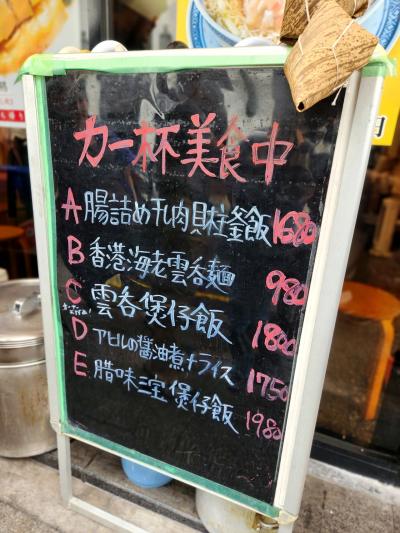 カー杯美食中
A 腸詰め干し肉貝柱釜飯 1680
B 香港海老雲呑麺 980
C 雲呑煲仔飯 1800
D アヒルの醤油煮+ライス 1750
E 腊味三宝煲仔飯 1980